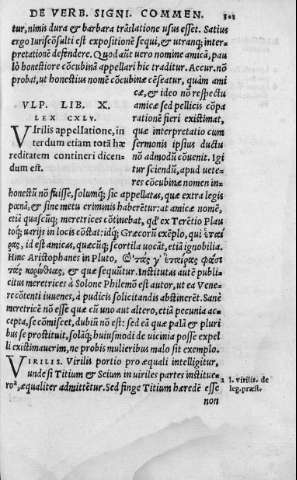 DE VERB. SIGNI. COMMEN. 303
tur, nimis dura & barbara trāslatione usus esset. Satius
ergo Iuriscōsulti est expositionē sequi, & utranq; inter-
pretationē defendere. Quod aūt uero nomine amicā, pau
lo honestiore cōcubinā appellari hic traditur. Accur. nō
probat, ut honestius nomē cōcubinæ cēseatur, quàm ami
cæ, & ideo nō respectu
amicæ sed pellicis cōpa
rationē fieri existimat,
quæ interpretatio cum
sermonis ipsius ductu
nō admodū conuenit. Igi
tur sciendū, apud uete-
res cōcubinæ nomen in-
VLP. LIB. X.
LEX CXLV.
VIrilis appellatione, in
terdum etiam totā hæ
reditatem contineri dicen
dum est.
honestū nō fuisse, solumq́; sic appellatas, quæ extra legis
pœnā, & sine metu criminis haberētur: at amicæ nomē,
etiā quascūq; meretrices cōtinebat, qd' ex Terētio Plau
toq; uarijs in locis cōstat: idq́; Græcorū exēplo, qui ἑταί
ρας, id est amicas, quæcūq; scortila uocāt, etiā ignobilia.
Hinc Aristophanes in Pluto, Ὁτὰς γ' ἑταίρας φασὶ
τὰς κορινθίας, & quæ sequūtur. Institutas autē publi-
citus meretrices à Solone Philemō est autor, ut ea Vene-
re cōtenti iuuenes, à pudicis solicitandis abstinerēt. Sanè
meretricē nō esse quæ cū uno aut altero, etiā pecunia ac-
cepta, se cōmiscet, dubiū nō est: sed ea quæ palā & pluri
bus se prostituit, solāq́; huiusmodi de uicinia posse expel
li existimauerim, ne probis mulieribus malo sit exemplo.
VIRILIS. Virilis portio pro æquali intelligitur,
unde si Titium & Seium in uiriles partes institue-
ro, æqualiter admittētur. Sed finge Titium hæredē esse
l. virilis. de
leg. præst.
non